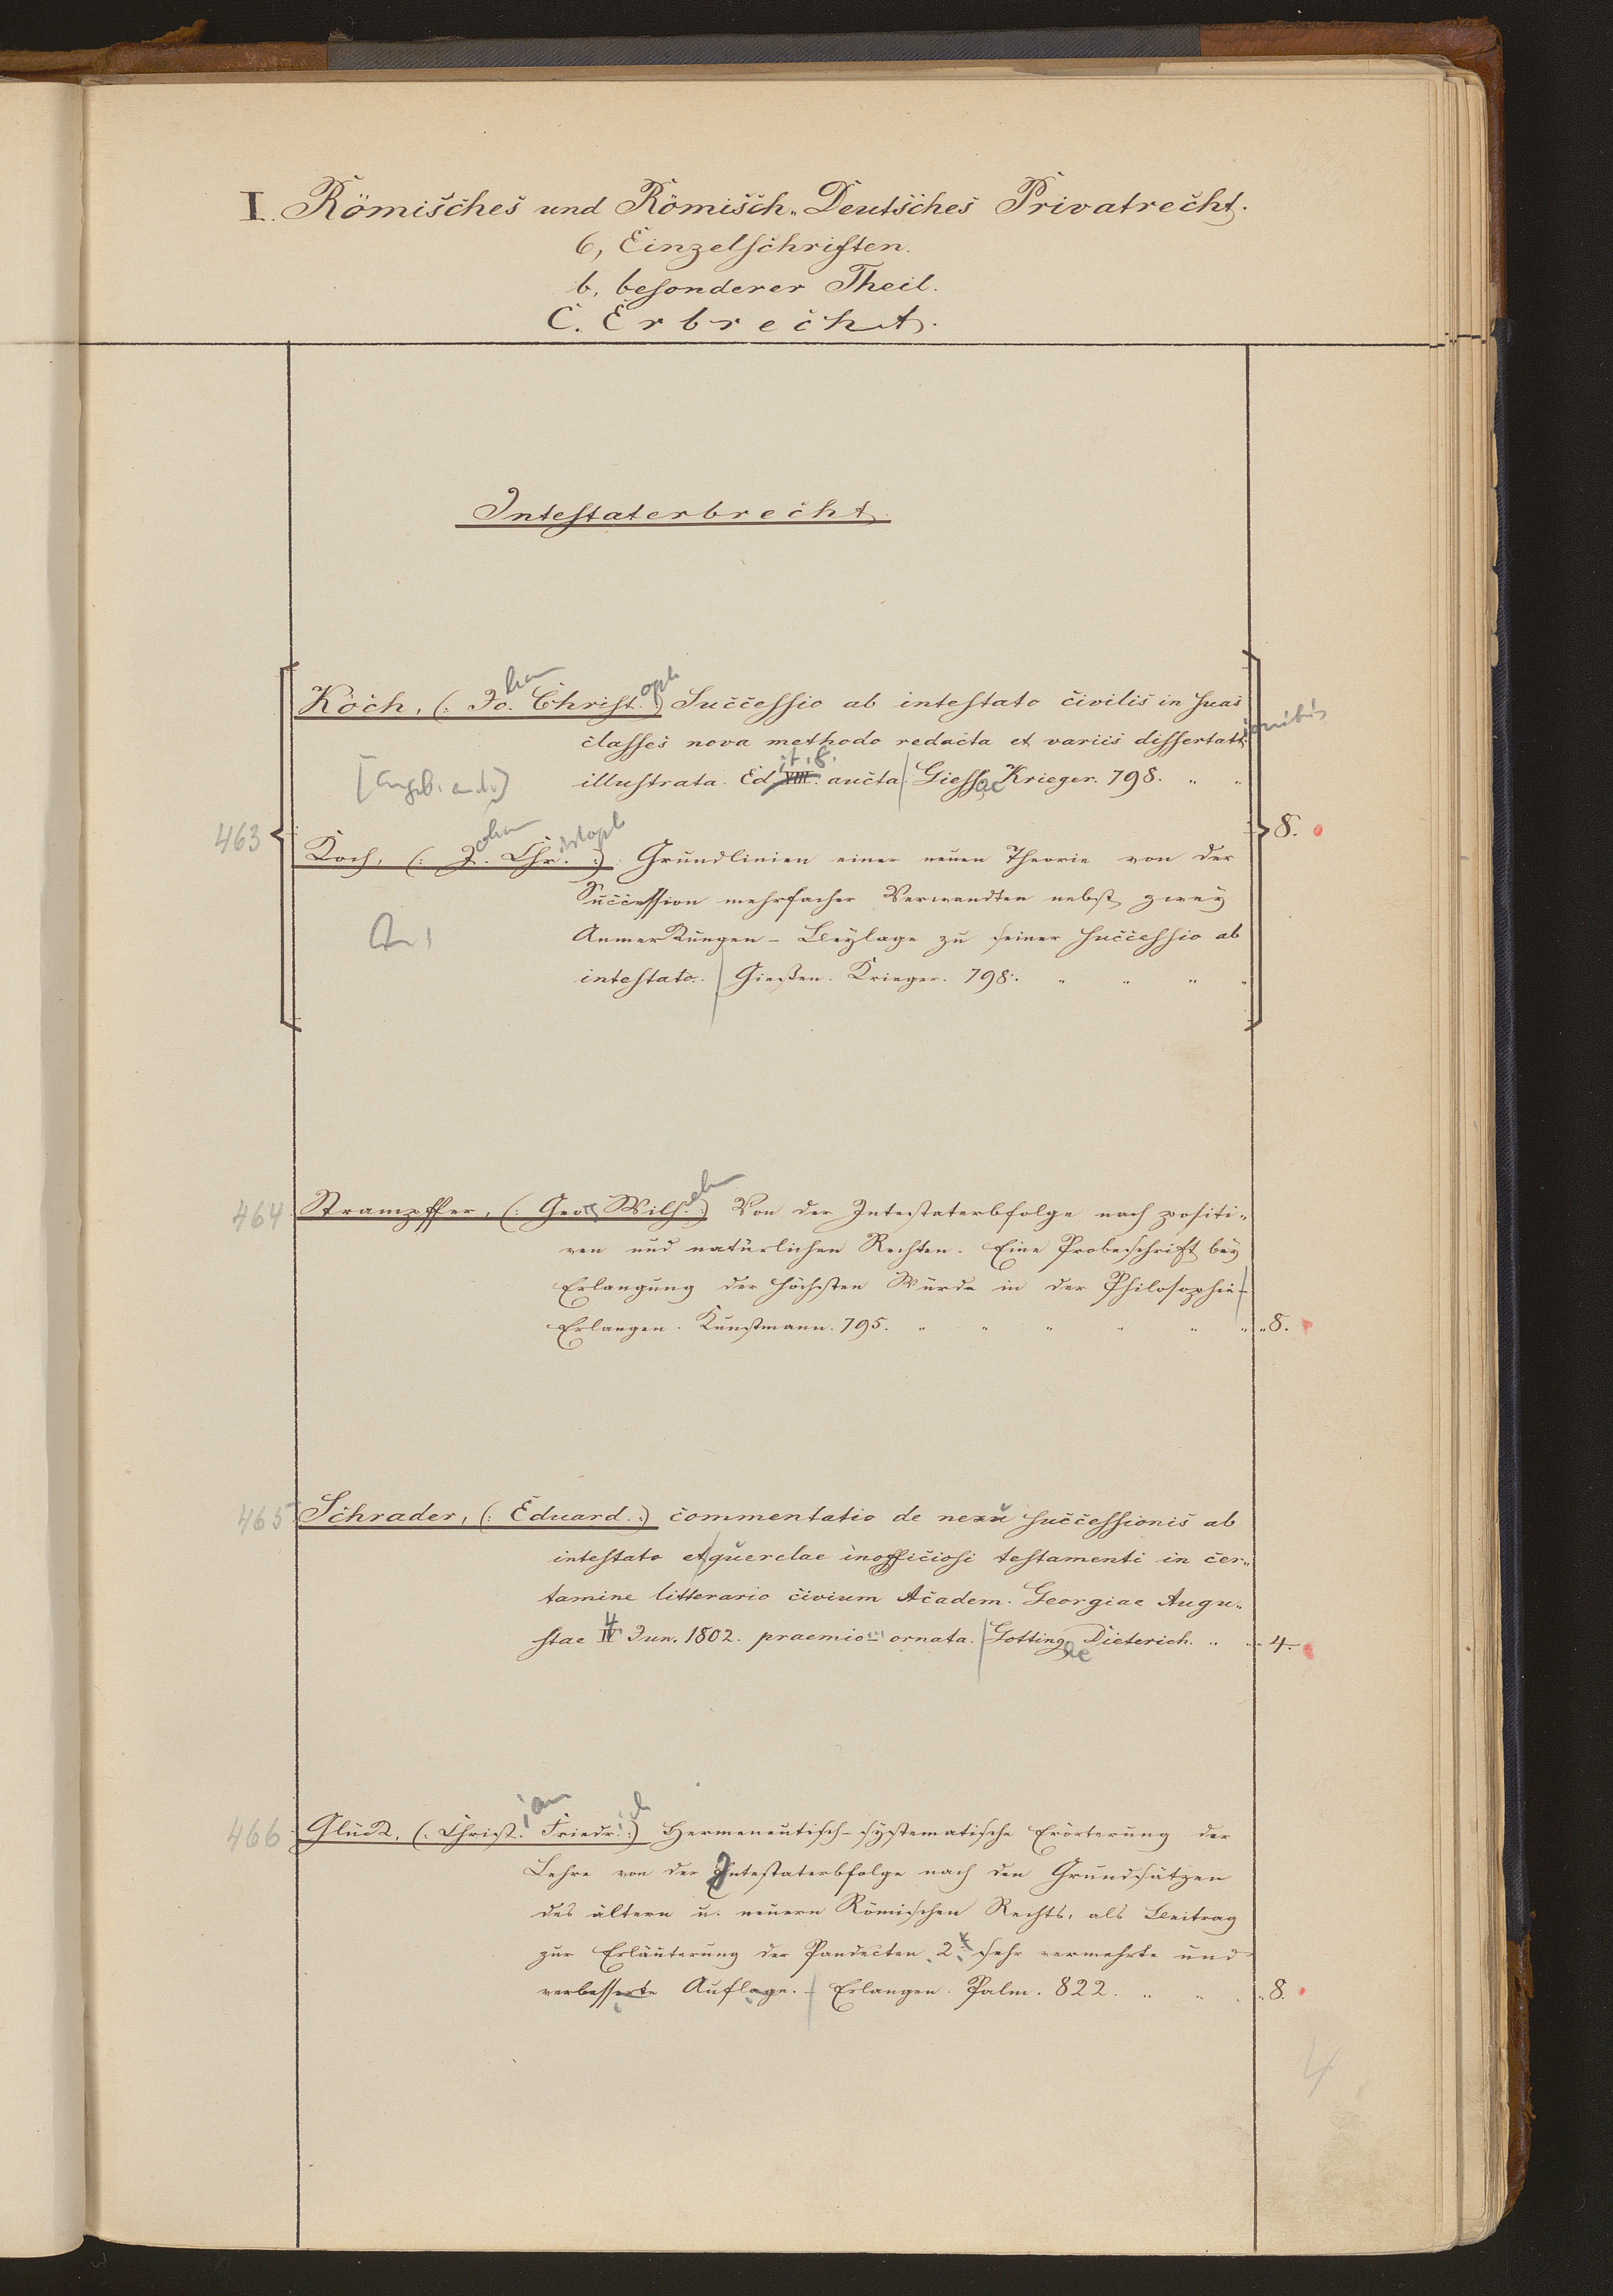 I. Römisches und Römisch-Deutsches Privatrecht.
6, Einzelschriften.
b, besonderer Theil.
C. Erbrecht.
Intestaterbrecht.
Koch, (: Jo. Christ. :) Successio ab intestato civilis in suas
classes nova methodo redacta et variis dissertatt.
illustrata. Ed. VIII. aucta. Giess. Krieger. 798. " "
463
8.
Koch, (: J. Chr. :) Grundlinien einer neuen Theorie von der
Succession mehrfacher Verwandten nebst zwey
Anmerkungen - Beylage zu seiner successio ab
intestato. Gießen. Krieger. 798. " " " "
464 Strampffer, (: Geo. Wilh. :) Von der Intestaterbfolge nach positi-
ven und natürlichen Rechten. Eine Probeschrift bey
Erlangung der höchsten Würde in der Philosophie -
Erlangen. Kunstmann. 795. " " " " " " " 8.
465 Schrader, (: Eduard. :) commentatio de nexu successionis ab
intestato et querelae inofficiosi testamenti in cer-
tamine litterario civium Academ. Georgiae Augu-
stae IV Jun. 1802. praemio ornata. Gotting. Dieterich. " " " 4.
466 Glück, (: Christ. Friedr. :) Hermeneutisch-systematische Erörterung der
Lehre von der Intestaterbfolge nach den Grundsätzen
des ältern u. neuern Römischen Rechts, als Beitrag
zur Erläuterung der Pandecten. 2. sehr vermehrte und
verbesserte Auflage. - Erlangen. Palm. 822. " " " " 8.
4